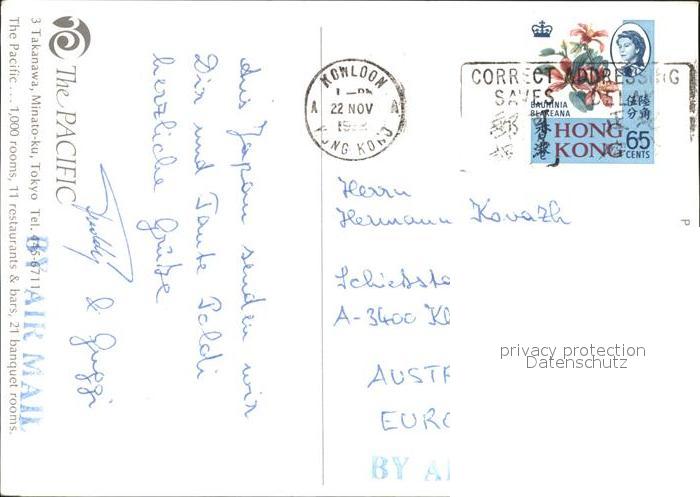 The PACIFIC
3 Takanawa, Minato-ku, Tokyo Tel. 445-6711
The Pacific ... 1,000 rooms, 11 restaurants & bars, 21 banquet rooms.
BY AIR MAIL
Aus Japan senden wir
Dir und Tante Poldi
herzliche Grüße
& Guggi
KOWLOON
1-PM
A A
22 NOV
HONG KONG
CORRECT ADDRESSING
SAVES DEL
BAUHINIA
BLAKEANA
香港
陸角
伍分
HONG
KONG
65
CENTS
Herrn
Hermann Kovazh
Schießsta
A-3400 Kl
AUSTR
EURO
BY AI
P
privacy protection
Datenschutz